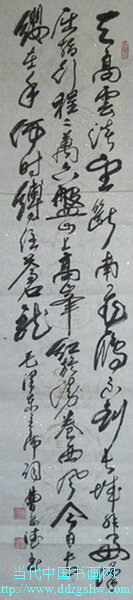 天高雲淡望斷南飛雁不到长城非好漢
屈指行程二萬六盤山上高峰红旗漫卷西風今日长
缨在手何时縛住蒼龍 毛泽东主席词 曹
当代中国书画网
www.ddzgshw.com